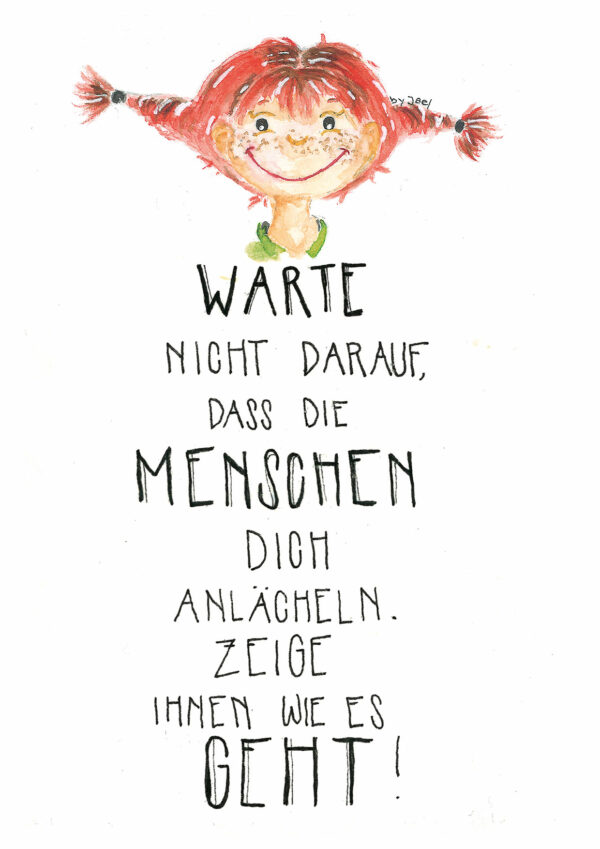 by Joel
WARTE
NICHT DARAUF,
DASS DIE
MENSCHEN
DICH
ANLÄCHELN.
ZEIGE
IHNEN WIE ES
GEHT!